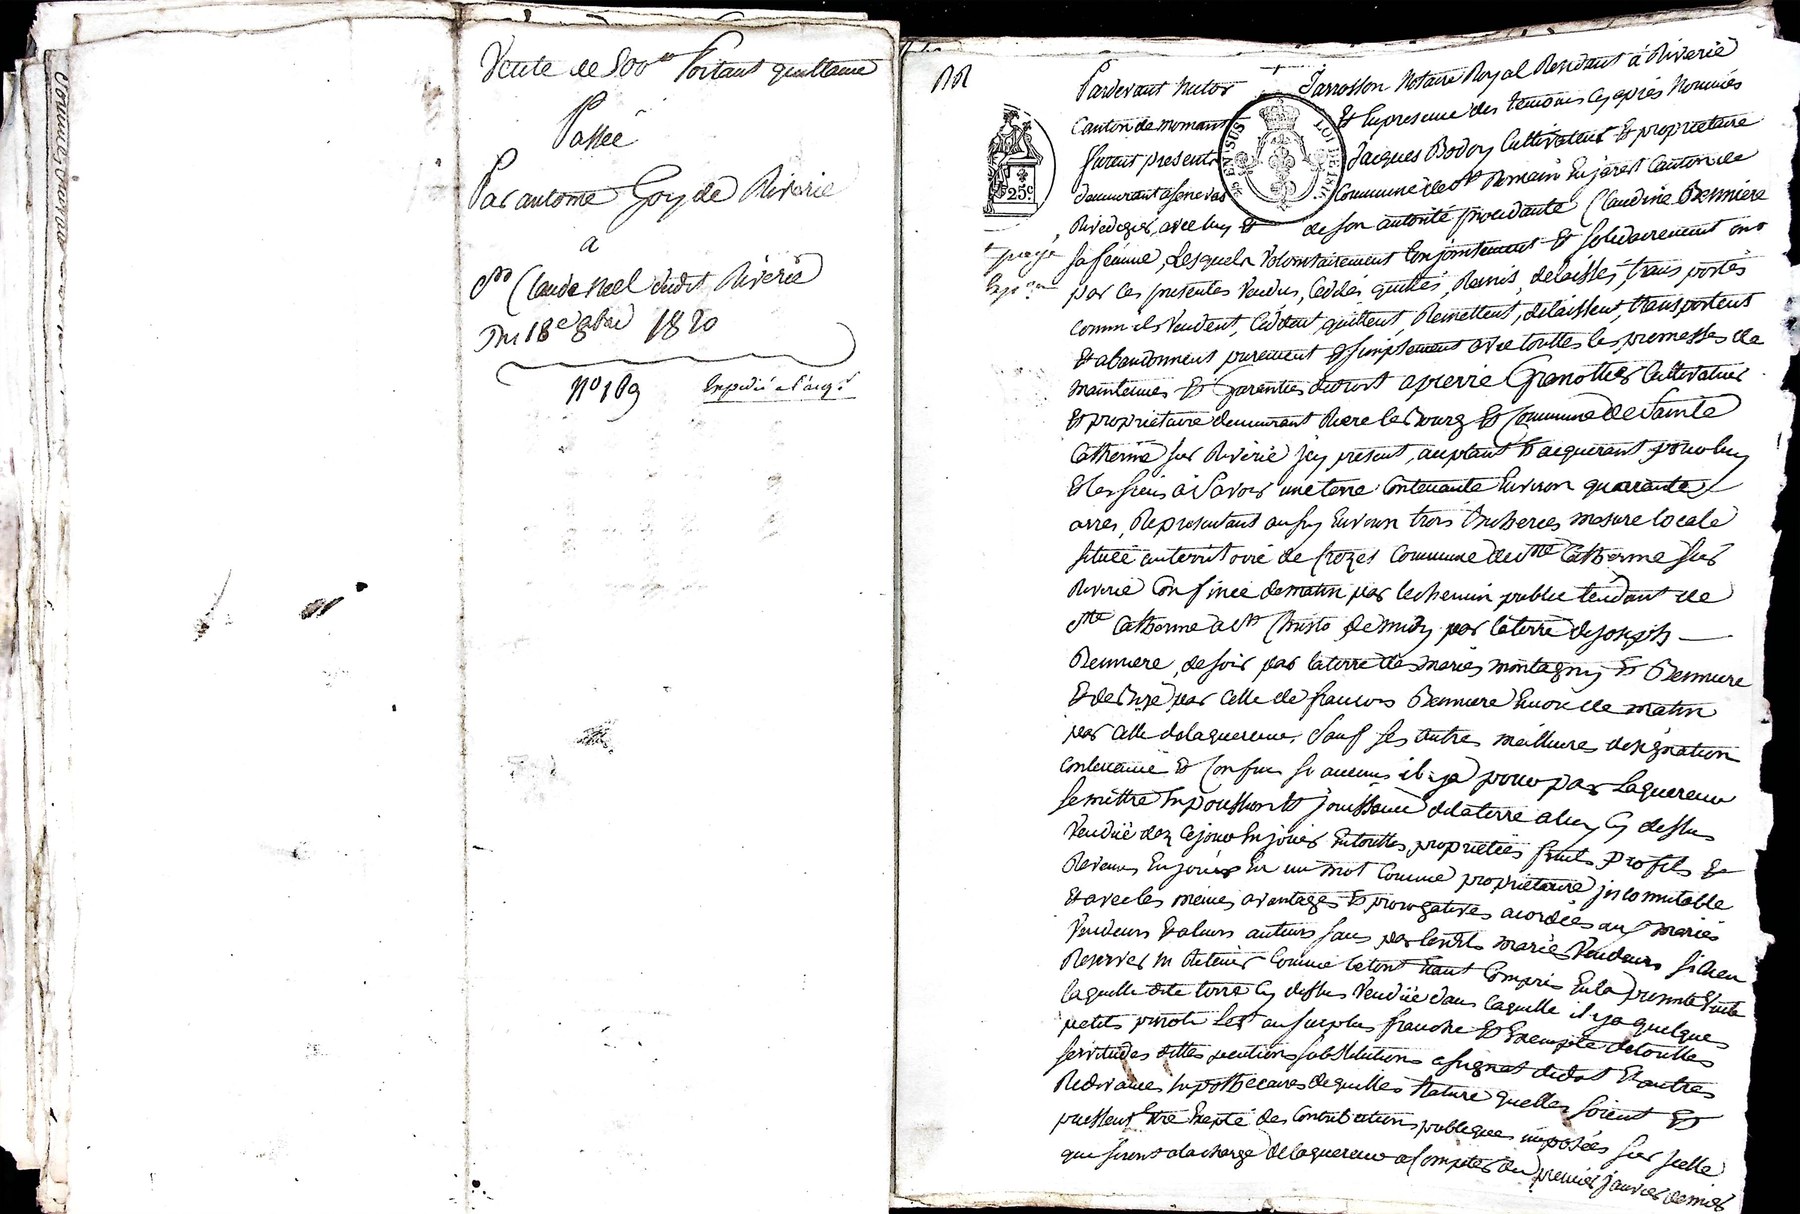 Vente de 500 ₶ Portant quittance
Passée
Par antoine Goy de Riverie
a
Sr Claude Neel dudit Riverie
Du 18e 8bre 1820
N° 189 Expedié a l'acq.r
Pardevant Jarrosson Notaire Royal Residant à Riverie
Canton de mornant Et En presence des temoins cy après Nommés
furent presents Jacques Bodoy Cultivateur Et propriétaire
demeurant a Commune de St Romain En jarest Canton de
Rivedegier, avec luy Et de son autorité procedante Claudine Bernniere
25c
EN SUS LOI DE 1816
sa femme, Lesquels volontairement Conjointement Et solidairement ont
par ces presentes vendus, Cédés quittés, Remis, delaissés, transportés
comm ils vendent, Cedent, quittent, Remettent, delaissent, transportent
Et abandonnent purement Et simplement avec touttes les promesses de
maintenues Et Garanties de droit a pierre Grenottier Cultivateur
Et propriétaire demeurant Riere le Bourg Et Commune de Sainte
Catherine sur Riverie jcy present, acceptant Et acquerant pour luy
Et les siens à Savoir une terre Contenante Environ quarante
arres, Representant aussy Environ trois Bicherées mesure locale
située au territoire de Crozes Commune de Ste Catherine sur
Riverie Confinée de matin par le chemin public tendant de
Ste Catherine a St Christo de midy par la terre de joseph
Bernniere, de soir par la terre des mariés montagny Et Bernniere
Et de Bize par celle de francois Bernniere Encore de matin
par celle de laquereur. Sauf ses autres meilleures designation
contenance Et Confins si aucuns il y a pour par Laquereur
se mettre En possession Et jouissance de la terre a luy cy dessus
Vendüe dez ce jour En jouir En touttes proprietées fruits Profits Et
Revenus En jouir En un mot Comme propriétaire jncomutable
Et avec les mêmes avantages Et prerogatives acordées aux mariés
Vendeurs Et a leurs auteurs sans par lesdits mariés Vendeurs si Rien
Reserver ni Retenir Comme le tout Etant Compris En la presente Vente
laquelle dite terre cy dessus Vendüe dans laquelle il y a quelques
petits Est au surplus franche Et Exempte de touttes
servitudes dettes pentions substitutions assignat de dot Et autres
Redevances hypothecaires de quelles Nature quelles soient Et
puissent Etre Excepté des Contributions publiques imposées sur jcelle
qui seront a la charge de laquereur a Compter du premier janvier dernier